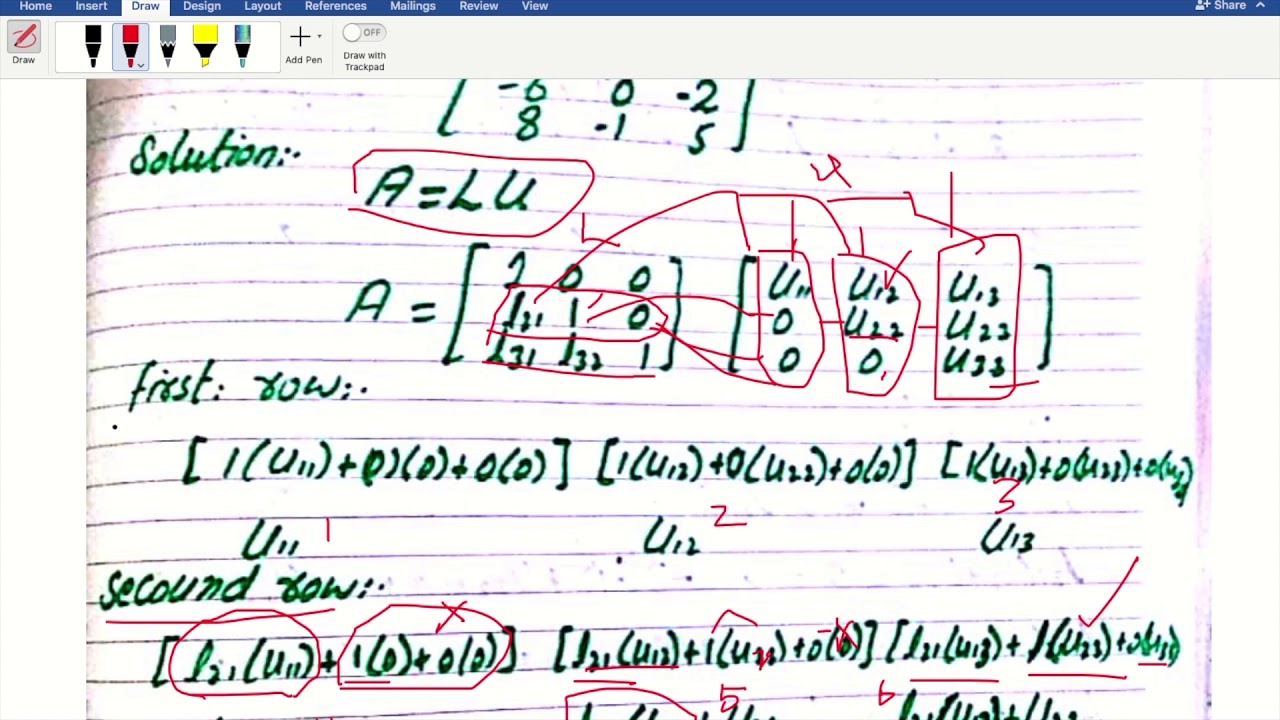 Home Insert Draw Design Layout References Mailings Review View Share
OFF
Draw Add Pen Draw with Trackpad
-6 0 -2
8 -1 5
Solution:-
A=LU
L U
A = [1 0 0] [U11 U12 U13]
[l21 1 0] [0 U22 U23]
[l31 l32 1] [0 0 U33]
first: row:-
[1(U11)+0)(0)+0(0)] [1(U12)+0(U22)+0(0)] [1(U13)+0(U23)+0(U33)
U11 1 U12 2 U13 3
secound row:-
[l21(U11)+1(0)+0(0)] [l21(U12)+1(U22)+0(0)] [l21(U13)+1(U23)+0(U33)
5 6